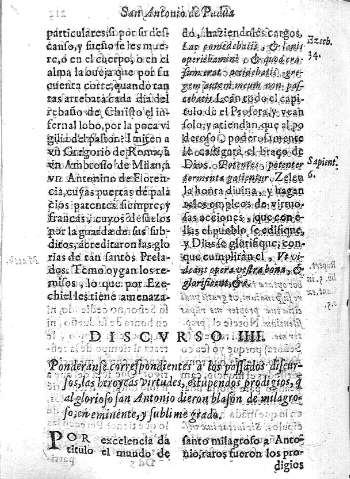 San Antonio de Padua
particulares, si por su des-
canso, y sueño se les mue-
re, o en el cuerpo, o en el
alma la oveja que por su
cuenta corre, quando tan
tas arrebata cada dia del
rebaño de Christo el in-
fernal lobo, por la poca vi
gilia del pastor? Imiten a
vn Gregorio de Roma, a
vn Ambrosio de Milan, a
vn Antonino de Floren-
cia, cuyas puertas de pala
cios patentes siempre, y
francas, cuyos desuelos
por la guarda de sus sub-
ditos, acreditaron las glo-
rias de tan santos Prela-
dos. Temo oygan los re-
missos, lo que por Eze-
chiel les tiene amenaza-
do, haziendoles cargos,
Lac comedebatis, & lanis
operiebamini, & quod cras
sum erat occidebatis: gre-
gem autem meum non pas-
cebatis. Lean todo el capi-
tulo de el Profeta, y vean
solo, y atiendan, que al po
deroso, poderosamente
le castigará el braço de
Dios. Potentes potenter
tormenta patientur. Zelen
la honra diuina, y hagan
nobles empleos de virtuo-
sas acciones, que con e-
llas el pueblo se edifique,
y Dios se glorifique, con
que cumpliràn el, Vt vi-
deant opera vestra bona, &
glorificent, &c.
Ezech.
34.
Sapient.
6.
DISCVRSO IIII.
Ponderanse correspondientes a los passados discur-
sos, las heroycas virtudes, estupendos prodigios, q̃
al glorioso san Antonio dieron blason de milagro-
so, en eminente, y sublime grado.
POR excelencia da
titulo el mundo de
santo milagroso a Anto-
nio, raros fueron los pro-
digios